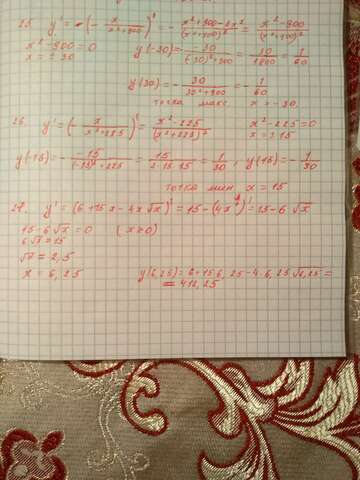 25. y' = -(- x/(x²+900))' = - (x²+900-2x²)/(x²+900)² = (x²-900)/(x²+900)²
x²-900=0 y(-30) = - (-30)/((-30)²+900) = 30/1800 = 1/60
x = ±30
y(30) = - 30/(30²+900) = - 1/60
точка макс. x = -30.
26. y' = (- x/(x²+225))' = (x²-225)/(x²+225)² x²-225=0
x = ±15
y(-15) = - (-15)/((-15)²+225) = 15/(2·15·15) = 1/30 , y(15) = - 1/30
точка мин x = 15
27. y' = (6+15x-4x√x)' = 15-(4x^)' = 15-6√x
15-6√x = 0 (x≥0)
6√x = 15
√x = 2,5
x = 6,25 y(6,25) = 6+15·6,25-4·6,25√6,25 =
= 412,25